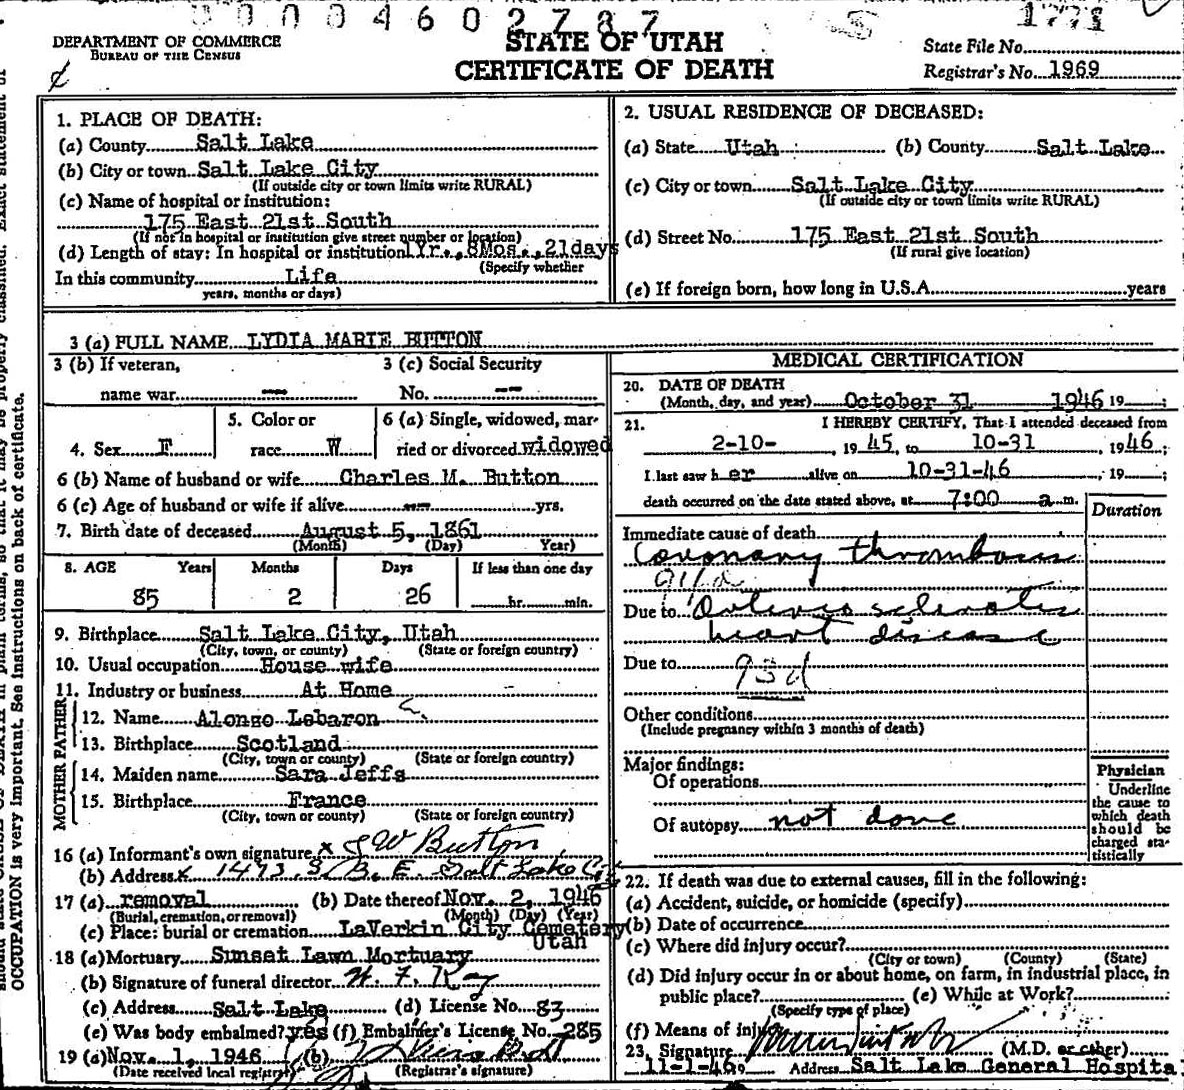 0 0 0 0 4 6 0 2 7 8 7
1771
DEPARTMENT OF COMMERCE
BUREAU OF THE CENSUS
STATE OF UTAH
CERTIFICATE OF DEATH
State File No.
Registrar's No. 1969
1. PLACE OF DEATH:
(a) County Salt Lake
(b) City or town Salt Lake City
(If outside city or town limits write RURAL)
(c) Name of hospital or institution:
175 East 21st South
(If not in hospital or institution give street number or location)
(d) Length of stay: In hospital or institution 1Yr., 8Mos., 21days
(Specify whether
In this community Life
years, months or days)
2. USUAL RESIDENCE OF DECEASED:
(a) State Utah (b) County Salt Lake
(c) City or town Salt Lake City
(If outside city or town limits write RURAL)
(d) Street No. 175 East 21st South
(If rural give location)
(e) If foreign born, how long in U.S.A. years
3 (a) FULL NAME LYDIA MARIE BUTTON
3 (b) If veteran, 3 (c) Social Security
name war --- No. ---
4. Sex F
5. Color or
race W
6 (a) Single, widowed, mar-
ried or divorced widowed
6 (b) Name of husband or wife Charles M. Button
6 (c) Age of husband or wife if alive --- yrs.
7. Birth date of deceased August 5, 1861
(Month) (Day) Year)
8. AGE Years Months Days If less than one day
85 2 26 hr. min.
9. Birthplace Salt Lake City, Utah
(City, town, or county) (State or foreign country)
10. Usual occupation House wife
11. Industry or business At Home
FATHER
12. Name Alonso Lebaron
13. Birthplace Scotland
(City, town or county) (State or foreign country)
MOTHER
14. Maiden name Sara Jeffs
15. Birthplace France
(City, town or county) (State or foreign country)
16 (a) Informant's own signature x S W Button
(b) Address x 1473 3 E. Salt Lake City
17 (a) removal (b) Date thereof Nov. 2, 1946
(Burial, cremation, or removal) (Month) (Day) (Year)
(c) Place: burial or cremation LaVerkin City Cemetery
Utah
18 (a) Mortuary Sunset Lawn Mortuary
(b) Signature of funeral director
(c) Address Salt Lake (d) License No. 83
(e) Was body embalmed? yes (f) Embalmer's License No. 285
19 (a) Nov. 1, 1946 (b)
(Date received local registrar) (Registrar's signature)
MEDICAL CERTIFICATION
20. DATE OF DEATH
(Month, day, and year) October 31 1946 19 ;
21. I HEREBY CERTIFY, That I attended deceased from
2-10- , 19 45, to 10-31 , 1946;
I last saw her alive on 10-31-46 , 19 ;
death occurred on the date stated above, at 7:00 a m.
Duration
Immediate cause of death
Coronary thrombosis
Due to Arteriosclerotic
heart disease
Due to
93d
Other conditions
(Include pregnancy within 3 months of death)
Major findings:
Of operations
Of autopsy not done
Physician
Underline
the cause to
which death
should be
charged sta-
tistically
22. If death was due to external causes, fill in the following:
(a) Accident, suicide, or homicide (specify)
(b) Date of occurrence
(c) Where did injury occur?
(City or town) (County) (State)
(d) Did injury occur in or about home, on farm, in industrial place, in
public place? (e) While at Work?
(Specify type of place)
(f) Means of injury
23. Signature (M.D. or other)
11-1-46 Address Salt Lake General Hospita
OCCUPATION is very important. See instructions on back of certificate.